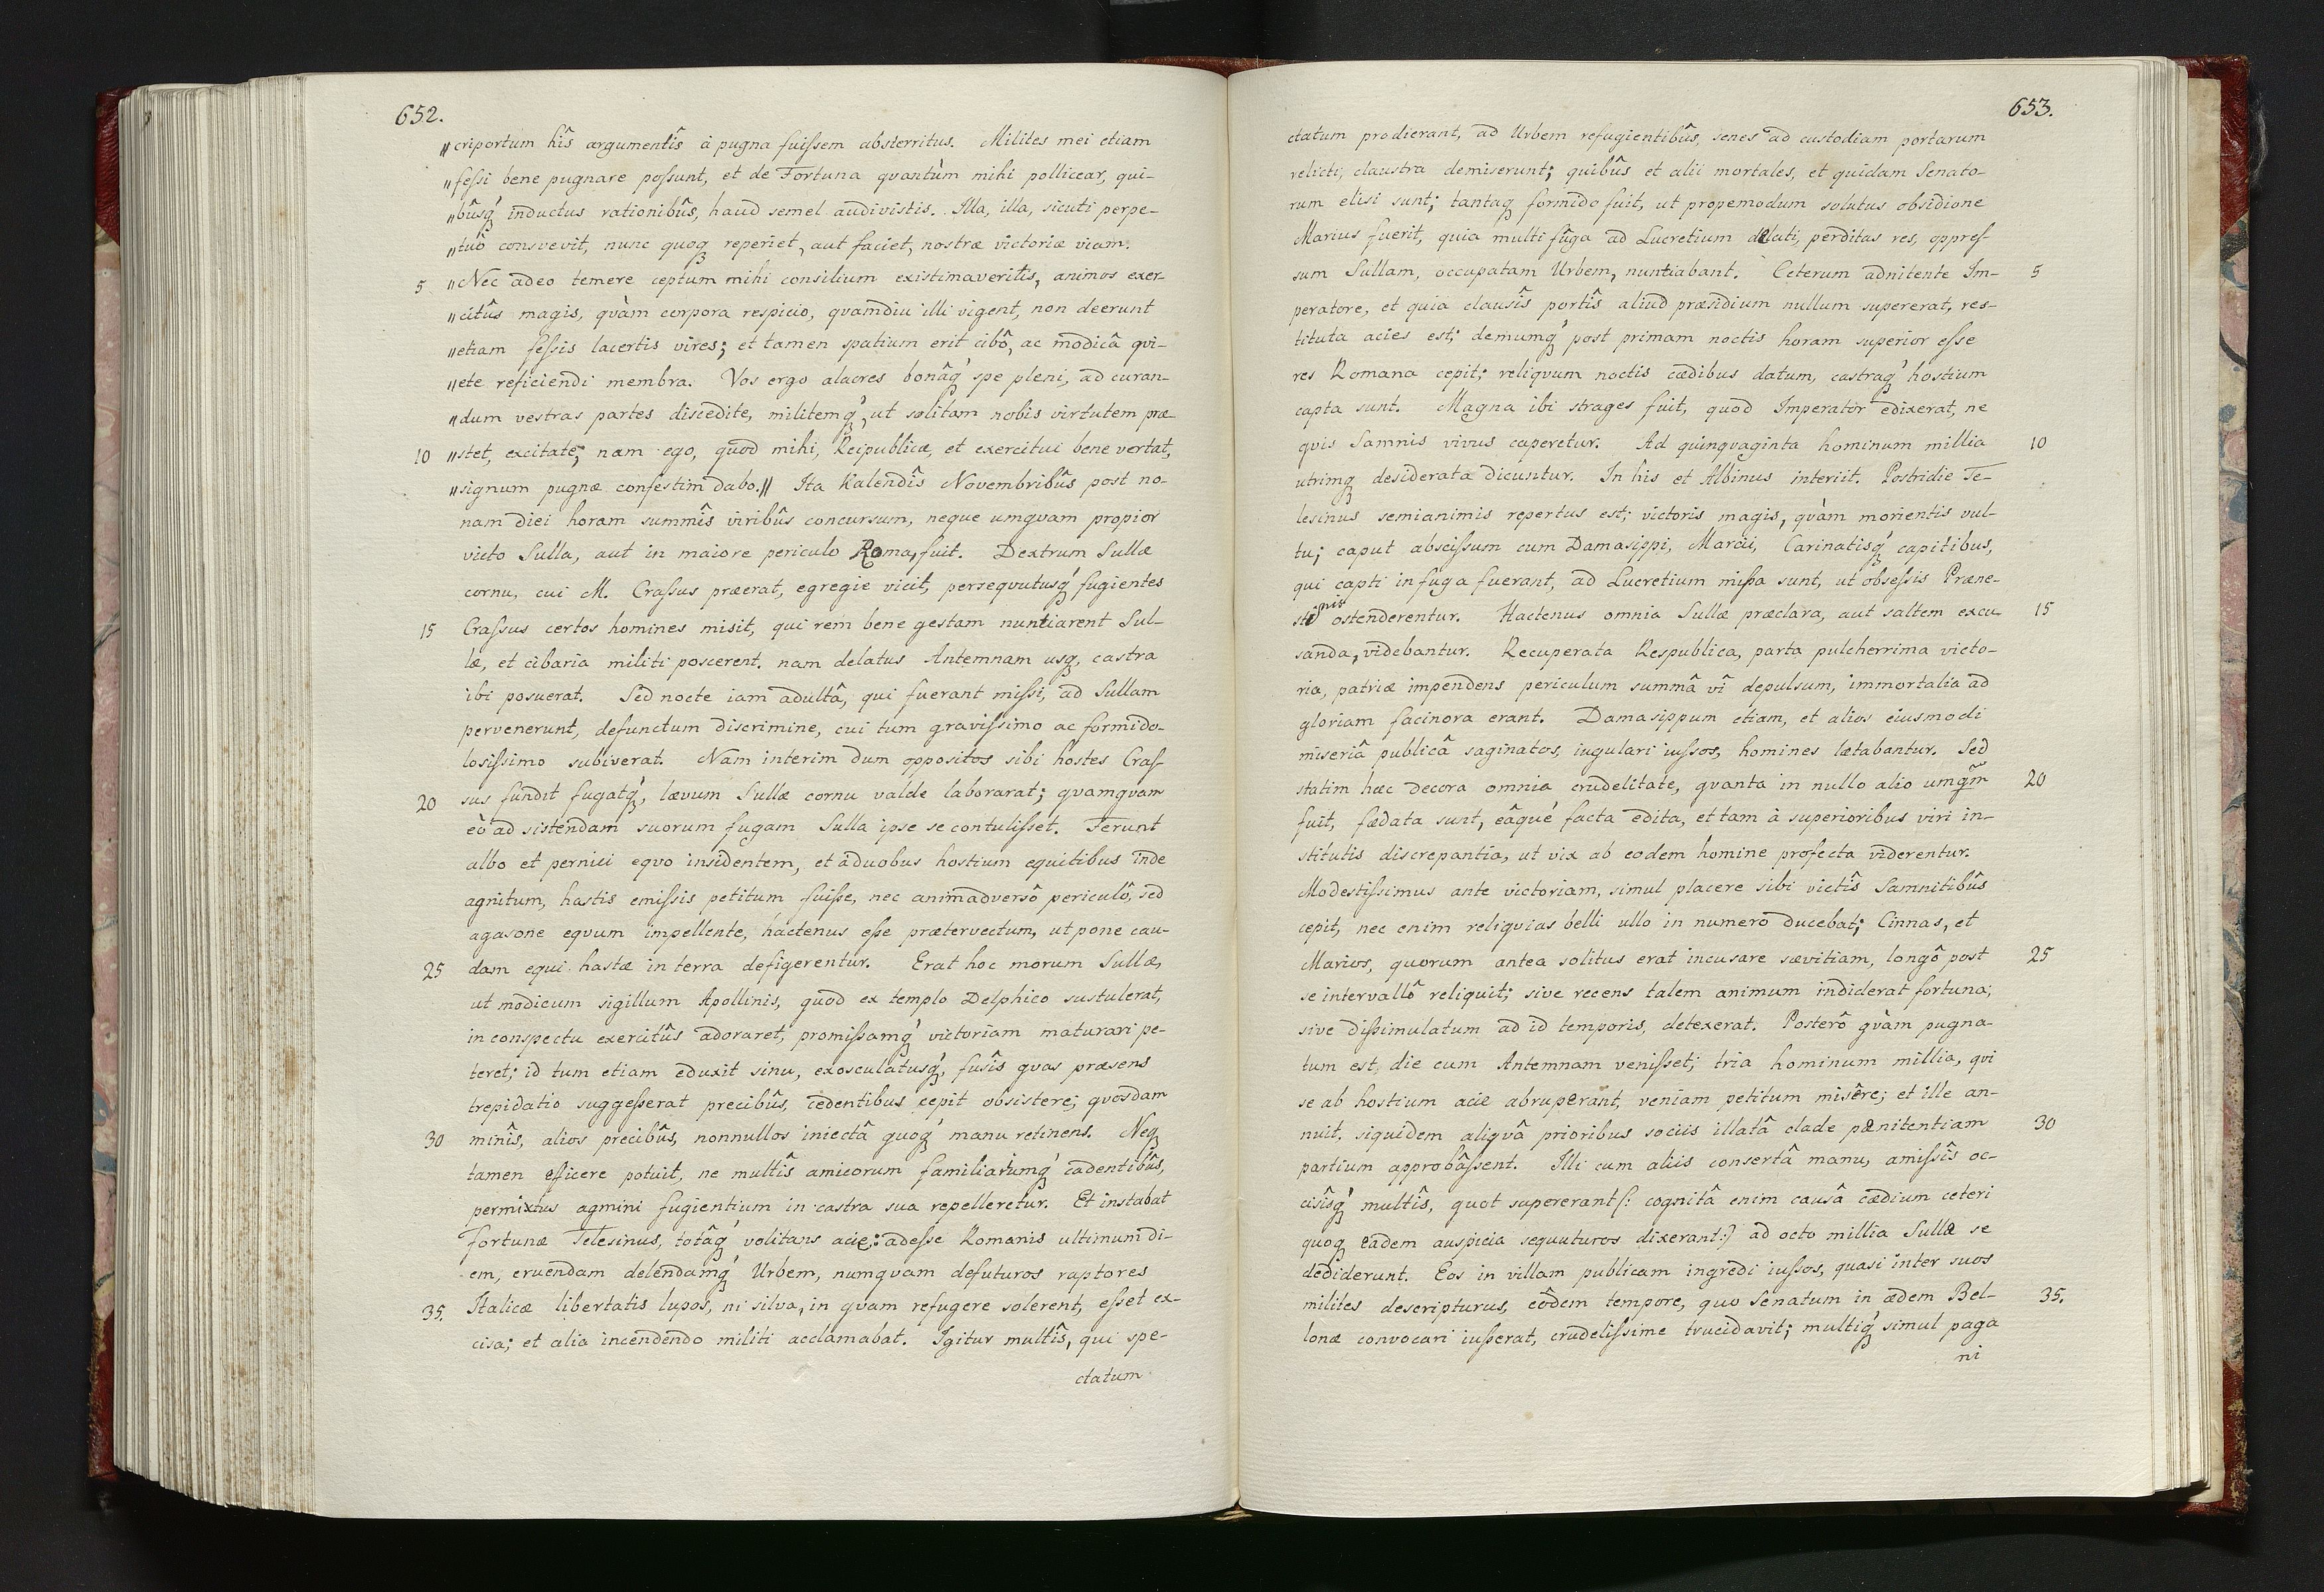 652.
"criportum hîs argumentîs à pugna fuiſsem absterritus. Milites mei etiam
"feſsi bene pugnare poſsunt, et de Fortuna qvantùm mihi pollicear, qui-
"bûsq́ inductus rationibûs, haud semel audivistis. Illa, illa, sicuti perpe-
"tuô consvevit, nunc quoq reperiet, aut faciet, nostræ victoriæ viam.
5 "Nec adeo temere ceptum mihi consilium existimaveritis, animos exer-
"citûs magis, qvàm corpora respicio, qvamdiu illi vigent, non deerunt
"etiam feſsis lacertis vires; et tamen spatium erit cibô, ac modicâ qvi-
"ete reficiendi membra. Vos ergo alacres bonâq́ spe pleni, ad curan-
"dum vestras partes discedite, militemq́, ut solitam nobis virtutem præ-
10 "stet, excitate; nam ego, quod mihi, Reipublicæ, et exercitui bene vertat,
"signum pugnæ confestim dabo." Ita Kalendîs Novembribûs post no-
nam diei horam summîs viribûs concursum, neque umqvam propior
victo Sulla, aut in maiore periculo Roma, fuit. Dextrum Sullæ
cornu, cui M. Craſsus præerat, egregie vicit, perseqvutusq́ fugientes
15 Craſsus certos homines misit, qui rem bene gestam nuntiarent Sul-
læ, et cibaria militi poscerent. nam delatus Antemnam usq, castra
ibi posuerat. Sed nocte iam adultâ, qui fuerant miſsi, ad Sullam
pervenerunt, defunctum discrimine, cui tum graviſsimo ac formido-
losiſsimo subiverat. Nam interim dum oppositos sibi hostes Craſ-
20 sus fundit fugatq́, lævum Sullæ cornu valde laborarat; qvamqvam
eò ad sistendam suorum fugam Sulla ipse se contuliſset. Ferunt
albo et pernici eqvo insidentem, et à duobus hostium equitibus inde
agnitum, hastis emiſsis petitum fuiſse, nec animadversô periculô, sed
agasone eqvum impellente, hactenus eſse prætervectum, ut pone cau-
25 dam equi hastæ in terra defigerentur. Erat hoc morum Sullæ,
ut modicum sigillum Apollinis, quod ex templo Delphico sustulerat,
in conspectu exercitûs adoraret, promiſsamq́ victoriam maturari pe-
teret; id tum etiam eduxit sinu, exosculatusq́, fusîs qvas præsens
trepidatio suggeſserat precibûs, cedentibus cepit obsistere; qvosdam
30 minîs, alios precibûs, nonnullos iniectâ quoq́ manu retinens. Neq
tamen efficere potuit, ne multîs amicorum familiariumq́ cadentibûs,
permixtus agmini fugientium in castra sua repelleretur. Et instabat
fortunæ Telesinus, totâq́ volitans acie: adeſse Romanis ultimum di-
em, eruendam delendamq́ Urbem, numqvam defuturos raptores
35. Italicæ libertatis lupos, ni silva, in qvam refugere solerent, eſset ex-
cisa; et alia incendendo militi acclamabat. Igitur multîs, qui spe-
ctatum
653.
ctatum prodierant, ad Urbem refugientibûs, senes ad custodiam portarum
relicti, claustra demiserunt; quibûs et alii mortales, et quidam Senato-
rum elisi sunt; tantaq formido fuit, ut propemodum solutus obsidione
Marius fuerit, quia multi fûga ad Lucretium delati, perditas res, oppreſ-
sum Sullam, occupatam Urbem, nuntiabant. Ceterum adnitente Im- 5
peratore, et quia clausîs portîs aliud præsidium nullum supererat, res-
tituta acies est; demumq́ post primam noctis horam superior eſse
res Romana cepit; reliqvum noctis cædibus datum, castraq́ hostium
capta sunt. Magna ibi strages fuit, quod Imperator edixerat, ne
qvis Samnis vivus caperetur. Ad quinqvaginta hominum millia 10
utrimq desiderata dicuntur. In his et Albinus interiit. Postridie Te-
lesinus semianimis repertus est; victoris magis, qvàm morientis vul-
tu; caput absciſsum cum Damasippi, Marcii, Carinatisq́ capitibus,
qui capti in fuga fuerant, ad Lucretium miſsa sunt, ut obseſsis Præne-
stinis ostenderentur. Hactenus omnia Sullæ præclara, aut saltem excu 15
sanda, videbantur. Recuperata Respublica, parta pulcherrima victo-
ria, patriæ impendens periculum summâ vî depulsum, immortalia ad
gloriam facinora erant. Damasippum etiam, et alios eiusmodi
miseriâ publicâ saginatos, iugulari iuſsos, homines lætabantur. Sed
statim hæc decora omnia crudelitate, qvanta in nullo alio umqm̃ 20
fuit, fædata sunt, eâqué facta edita, et tam à superioribus viri in-
stitutis discrepantia, ut vix ab eodem homine profecta viderentur.
Modestiſsimus ante victoriam, simul placere sibi victîs Samnitibûs
cepit, nec enim reliqvias belli ullo in numero ducebat; Cinnas, et
Marios, quorum antea solitus erat incusare sævitiam, longô post 25
se intervallô reliquit; sive recens talem animum indiderat fortuna;
sive diſsimulatum ad id temporis, detexerat. Posterô qvàm pugna-
tum est, die cum Antemnam veniſset; tria hominum millia, qvi
se ab hostium acie abruperant, veniam petitum misêre; et ille an-
nuit, siquidem aliqvâ prioribus sociis illatâ clade pænitentiam 30
partium approbâſsent. Illi cum aliis consertâ manu, amiſsîs oc-
cisîsq́ multîs, quot supererant (: cognitâ enim causâ cædium ceteri
quoq eadem auspicia sequuturos dixerant:) ad octo millia Sullæ se
dediderunt. Eos in villam publicam ingredi iuſsos, quasi inter suos
milites descripturus, eôdem tempore, quo Senatum in ædem Bel- 35.
lonæ convocari iuſserat, crudeliſsime trucidavit; multiq́ simul paga
ni